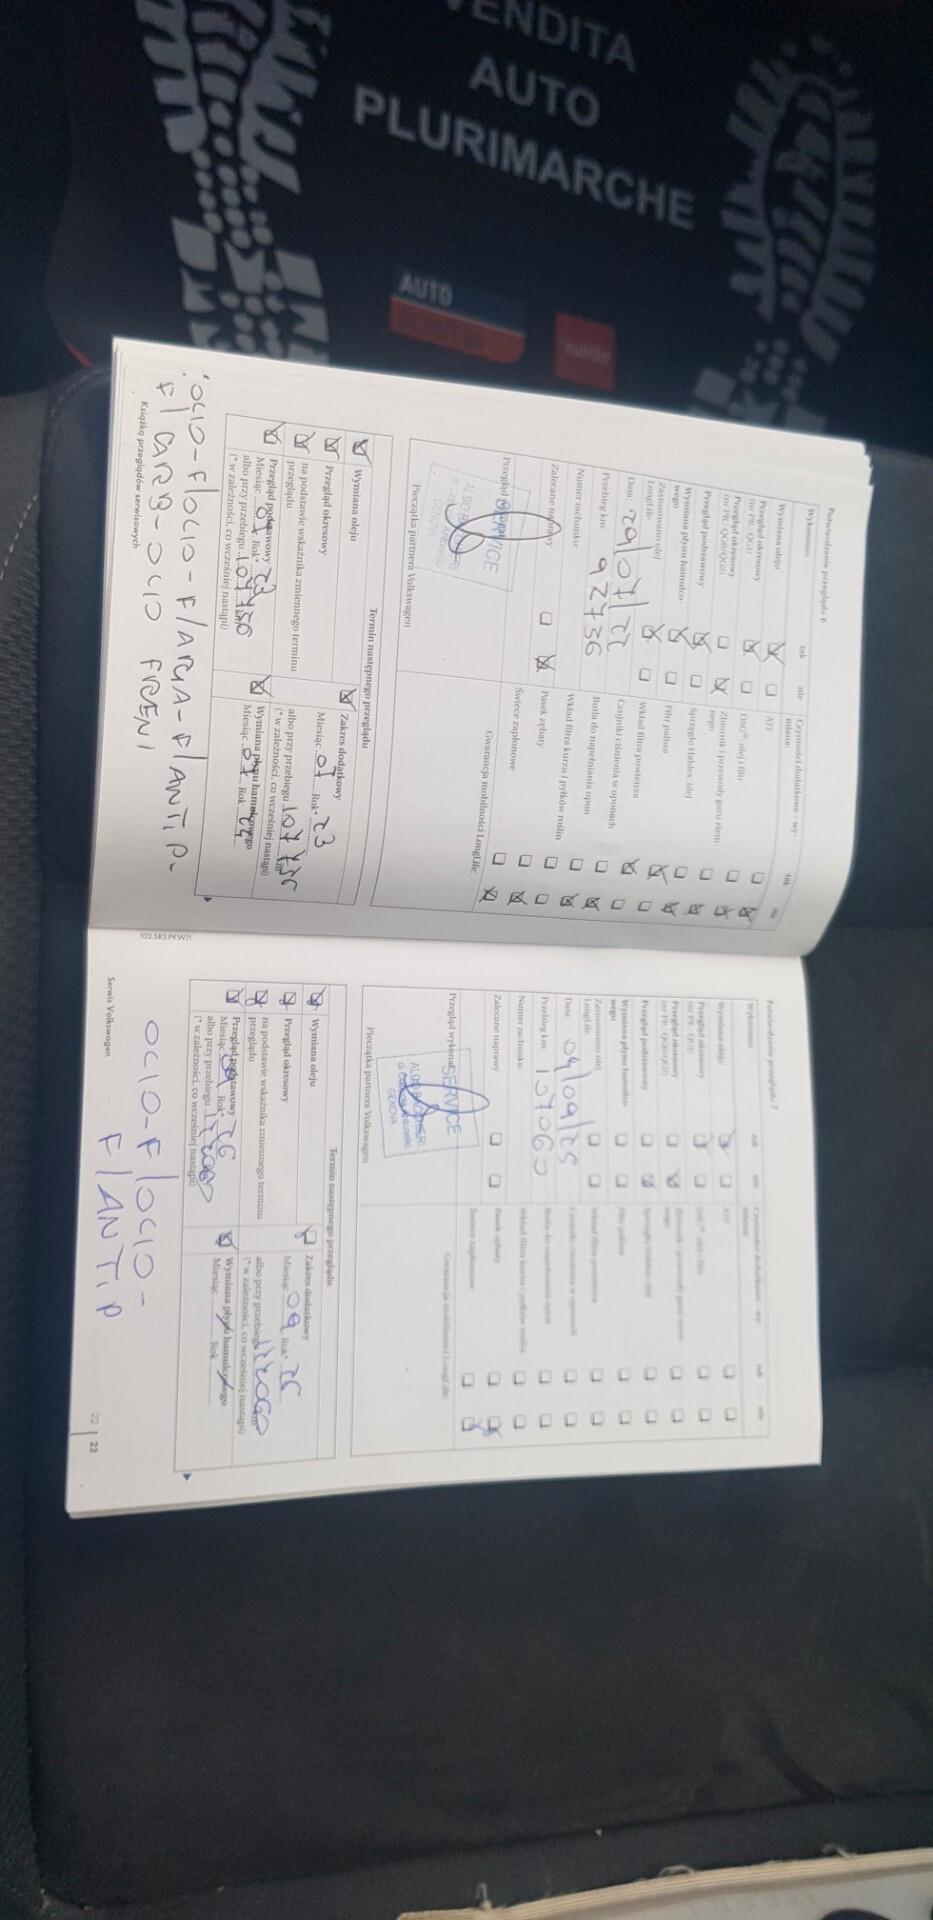 VENDITA
AUTO
PLURIMARCHE
AUTO
Potwierdzenie przeglądu 6
Wykonano:
tak
nie
Wymiana oleju
Przegląd okresowy
(nr PR: QG1)
Przegląd okresowy
(nr PR: QG0/QG2)
Przegląd podstawowy
Wymiana płynu hamulco-
wego
Zastosowano olej
LongLife
Data: 29/07/22
Przebieg km: 92736
Numer rachunku:
Zalecane naprawy
Przegląd
SERVICE
GENOVA
Pieczątka partnera Volkswagen
Czynności dodatkowe - wy-
miana:
tak
nie
ATF
DSG®: olej i filtr
Zbiornik i przewody gazu ziem-
nego
Sprzęgło Haldex: olej
Filtr paliwa
Wkład filtra powietrza
Czujniki ciśnienia w oponach
Butla do napełniania opon
Wkład filtra kurzu i pyłków roślin
Pasek zębaty
Świece zapłonowe
Gwarancja mobilności LongLife
Termin następnego przeglądu
Wymiana oleju
Przegląd okresowy
na podstawie wskaźnika zmiennego terminu
przeglądu
Przegląd podstawowy
Miesiąc 07 Rok* 23
albo przy przebiegu 107736 km*
(* w zależności, co wcześniej nastąpi)
Zakres dodatkowy
Miesiąc 07 Rok* 23
albo przy przebiegu
(* w zależności, co wcześniej nastąpi)
Wymiana płynu hamulcowego
Miesiąc 07 Rok 24
OLIO-F/OLIO-F/ARIA-F/ANTIP-
F/CARB-OLIO FRENI
Książka przeglądów serwisowych
102.5R3.PKW.71
Potwierdzenie przeglądu 7
Wykonano:
tak
nie
Wymiana oleju
Przegląd okresowy
(nr PR: QG1)
Przegląd okresowy
(nr PR: QG0/QG2)
Przegląd podstawowy
Wymiana płynu hamulco-
wego
Zastosowano olej
LongLife
Data: 04/09/25
Przebieg km: 107060
Numer rachunku:
Zalecane naprawy
Przegląd wykonał:
SERVICE
GENOVA
Pieczątka partnera Volkswagen
Czynności dodatkowe - wy-
miana:
tak
nie
ATF
DSG®: olej i filtr
Zbiornik i przewody gazu ziem-
nego
Sprzęgło Haldex: olej
Filtr paliwa
Wkład filtra powietrza
Czujniki ciśnienia w oponach
Butla do napełniania opon
Wkład filtra kurzu i pyłków roślin
Pasek zębaty
Świece zapłonowe
Gwarancja mobilności LongLife
Termin następnego przeglądu
Wymiana oleju
Przegląd okresowy
na podstawie wskaźnika zmiennego terminu
przeglądu
Przegląd podstawowy
Miesiąc 09 Rok* 26
albo przy przebiegu 122060
(* w zależności, co wcześniej nastąpi)
Zakres dodatkowy
Miesiąc 09 Rok* 26
albo przy przebiegu 122060 km*
(* w zależności, co wcześniej nastąpi)
Wymiana płynu hamulcowego
Miesiąc Rok
OLIO-F/OLIO-
F/ANTIP
Serwis Volkswagen
22 | 23